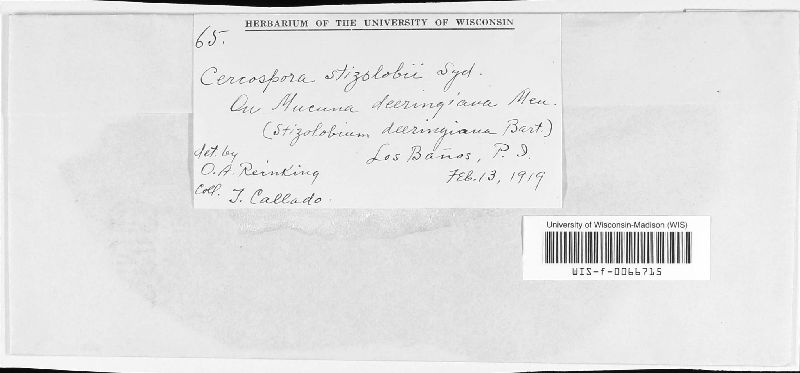 HERBARIUM OF THE UNIVERSITY OF WISCONSIN
65.
Cercospora stizolobii Syd.
On Mucuna deeringiana Mer.
(Stizolobium deeringiana Bart.)
det. by Los Baños, P. I.
O. A. Reinking Feb. 13, 1919
Coll. T. Callado.
University of Wisconsin-Madison (WIS)
WIS-f-0066715